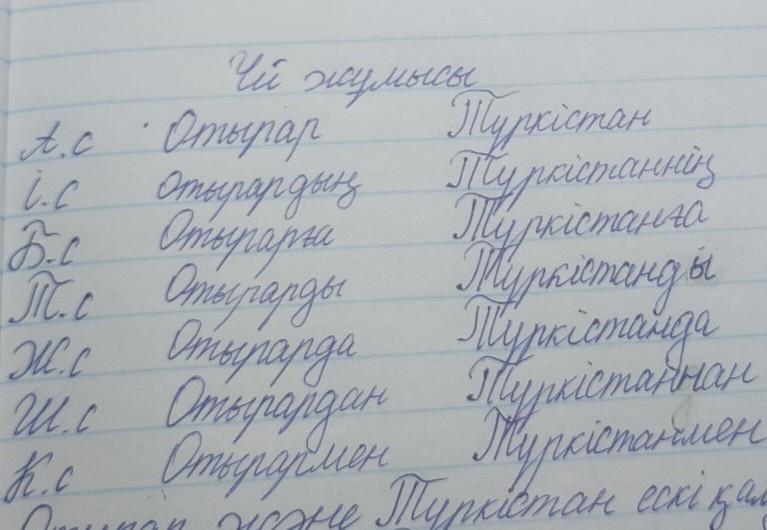 Үй жұмысы
А.с Отырар Түркістан
І.с Отырардың Түркістаннің
Б.с Отырарға Түркістанға
Т.с Отырарды Түркістанды
Ж.с Отырарда Түркістанда
Ш.с Отырардан Түркістаннан
К.с Отырармен Түркістанмен
Отырар және Түркістан ескі қал